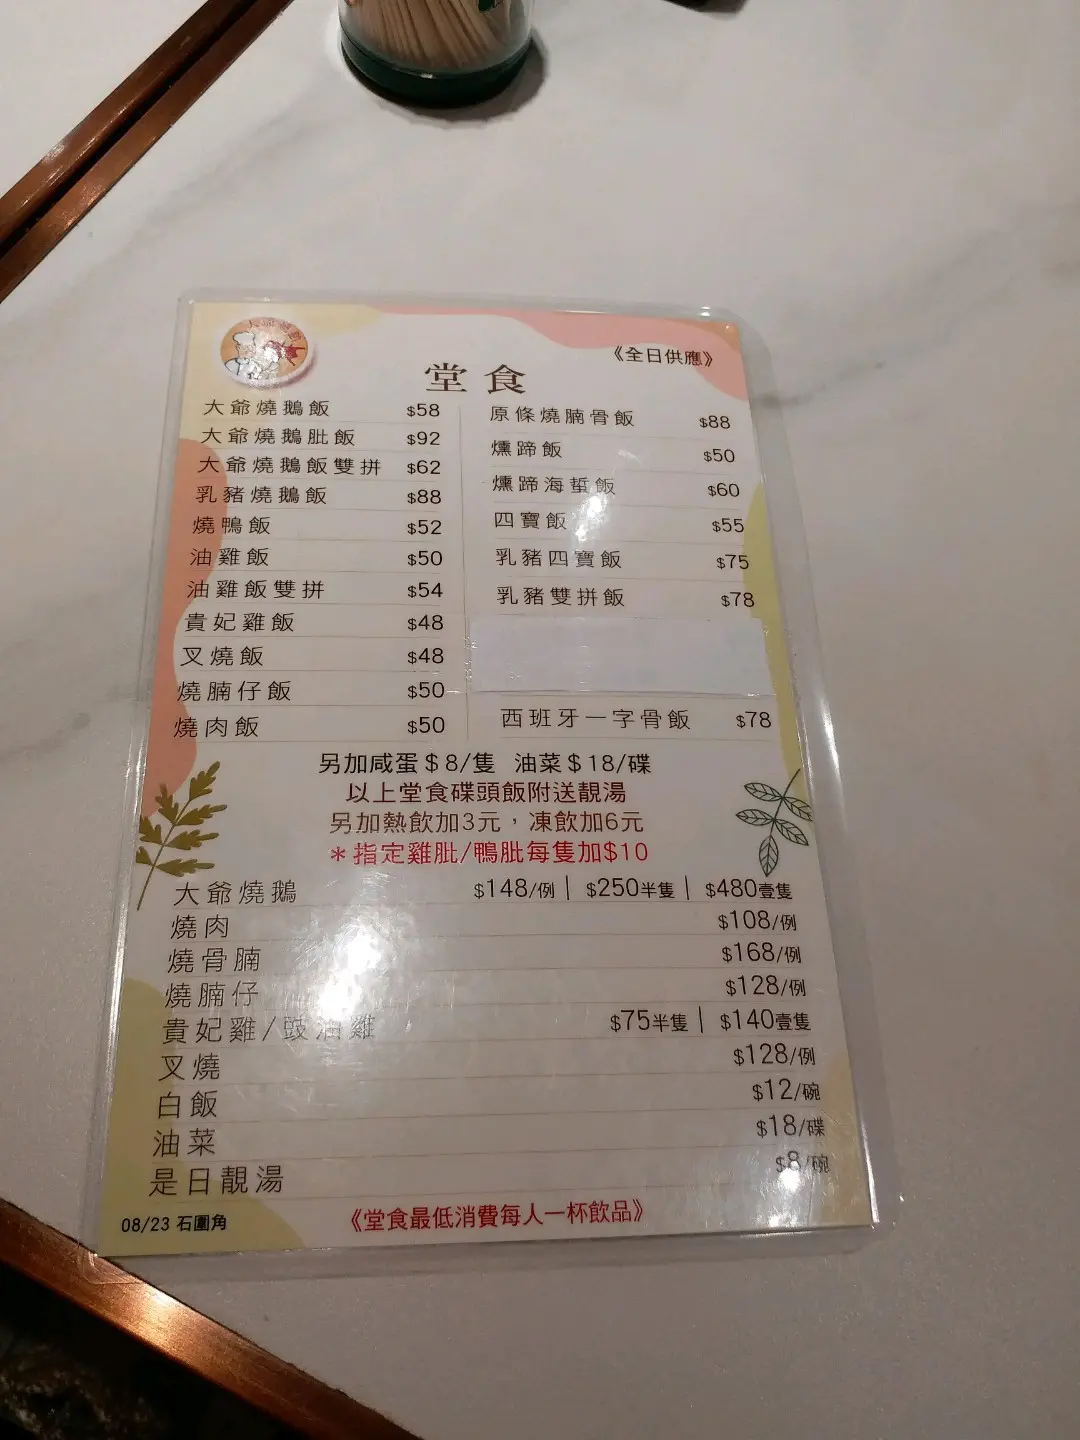 《全日供應》
堂食
大爺燒鵝飯 $58
大爺燒鵝髀飯 $92
大爺燒鵝飯雙拼 $62
乳豬燒鵝飯 $88
燒鴨飯 $52
油雞飯 $50
油雞飯雙拼 $54
貴妃雞飯 $48
叉燒飯 $48
燒腩仔飯 $50
燒肉飯 $50
原條燒腩骨飯 $88
燻蹄飯 $50
燻蹄海蜇飯 $60
四寶飯 $55
乳豬四寶飯 $75
乳豬雙拼飯 $78
西班牙一字骨飯 $78
另加咸蛋$8/隻 油菜$18/碟
以上堂食碟頭飯附送靚湯
另加熱飲加3元，凍飲加6元
*指定雞肶/鴨肶每隻加$10
大爺燒鵝 $148/例 | $250半隻 | $480壹隻
燒肉 $108/例
燒骨腩 $168/例
燒腩仔 $128/例
貴妃雞/豉油雞 $75半隻 | $140壹隻
叉燒 $128/例
白飯 $12/碗
油菜 $18/碟
是日靚湯 $8/碗
08/23 石圍角
《堂食最低消費每人一杯飲品》